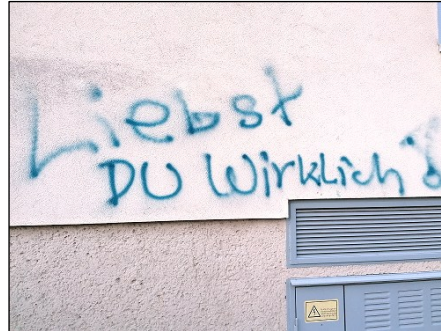 Liebst
DU Wirklich?